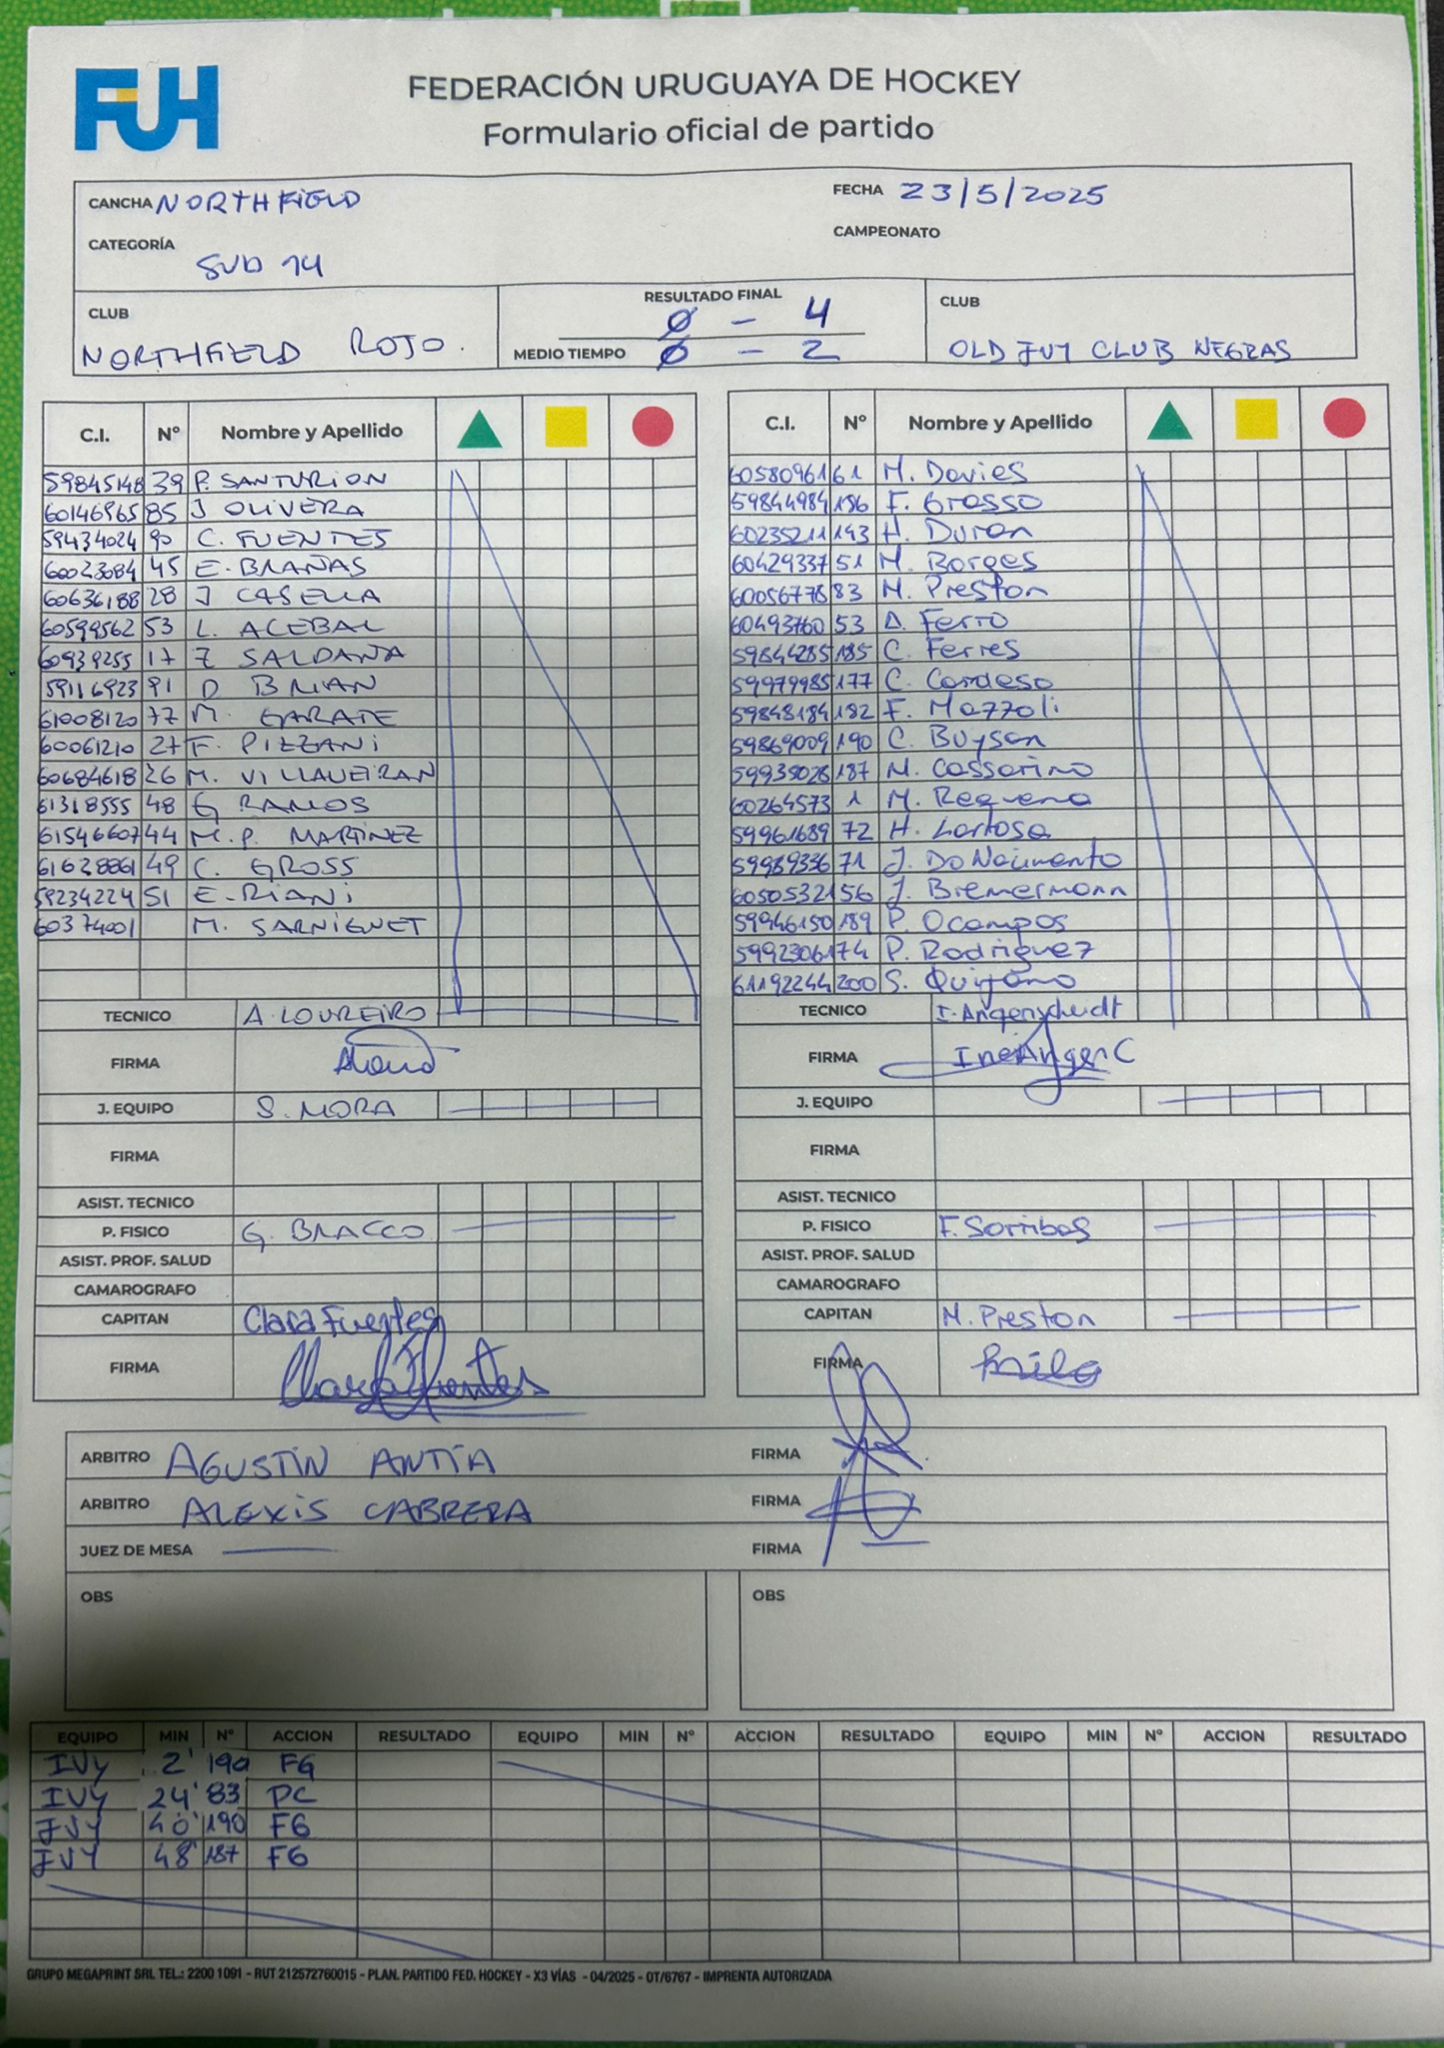 FUH
FEDERACIÓN URUGUAYA DE HOCKEY
Formulario oficial de partido
CANCHA NORTHFIELD FECHA 23/5/2025
CATEGORÍA SUB 14 CAMPEONATO
CLUB NORTHFIELD ROJO.
RESULTADO FINAL 0 - 4
MEDIO TIEMPO 0 - 2
CLUB OLD IVY CLUB NEGRAS
C.I. Nº Nombre y Apellido
59845148 39 P. SANTURION
60146965 85 J OLIVERA
59434024 90 C. FUENTES
60023084 45 E. BRAÑAS
60636188 28 J CASELLA
60599562 53 L. ACEBAL
60939255 17 Z SALDAÑA
59116923 91 D BRIAN
61008120 77 M. GARATE
60061210 27 F. PIZZANI
60684618 26 M. VILLAVEIRAN
61318555 48 G RAMOS
61546607 44 M.P. MARTINEZ
61628861 49 C. GROSS
59234224 51 E. RIANI
60374001 M. SARNIGUET
TECNICO A. LOUREIRO
FIRMA
J. EQUIPO S. MORA
FIRMA
ASIST. TECNICO
P. FISICO G. BRACCO
ASIST. PROF. SALUD
CAMAROGRAFO
CAPITAN Clara Fuentes
FIRMA Clara Fuentes
C.I. Nº Nombre y Apellido
60580961 61 M. Davies
59844984 186 F. Grosso
60235211 143 H. Duran
60429337 51 M. Borges
60056778 83 M. Preston
60493760 53 A. Ferro
59844285 185 C. Ferres
59979985 177 C. Cardeso
59848184 182 F. Mazzoli
59869009 190 C. Buysan
59935028 187 M. Cassarino
60264573 1 M. Requena
59961689 72 H. Lartosa
59989336 71 J. Do Nacimento
60505321 56 J. Bremermann
59946150 189 P. Ocampos
59923061 74 P. Rodriguez
61192244 200 S. Quijano
TECNICO I. Angenscheidt
FIRMA InesAngenC
J. EQUIPO
FIRMA
ASIST. TECNICO
P. FISICO F. Sorribas
ASIST. PROF. SALUD
CAMAROGRAFO
CAPITAN M. Preston
FIRMA
ARBITRO AGUSTIN ANTIA FIRMA
ARBITRO ALEXIS CABRERA FIRMA
JUEZ DE MESA FIRMA
OBS OBS
EQUIPO MIN Nº ACCION RESULTADO EQUIPO MIN Nº ACCION RESULTADO EQUIPO MIN Nº ACCION RESULTADO
IVY 2' 190 FG
IVY 24' 83 PC
IVY 40' 190 FG
IVY 48' 187 FG
GRUPO MEGAPRINT SRL TEL.: 2200 1091 - RUT 212572760015 - PLAN. PARTIDO FED. HOCKEY - X3 VÍAS - 04/2025 - OT/6767 - IMPRENTA AUTORIZADA